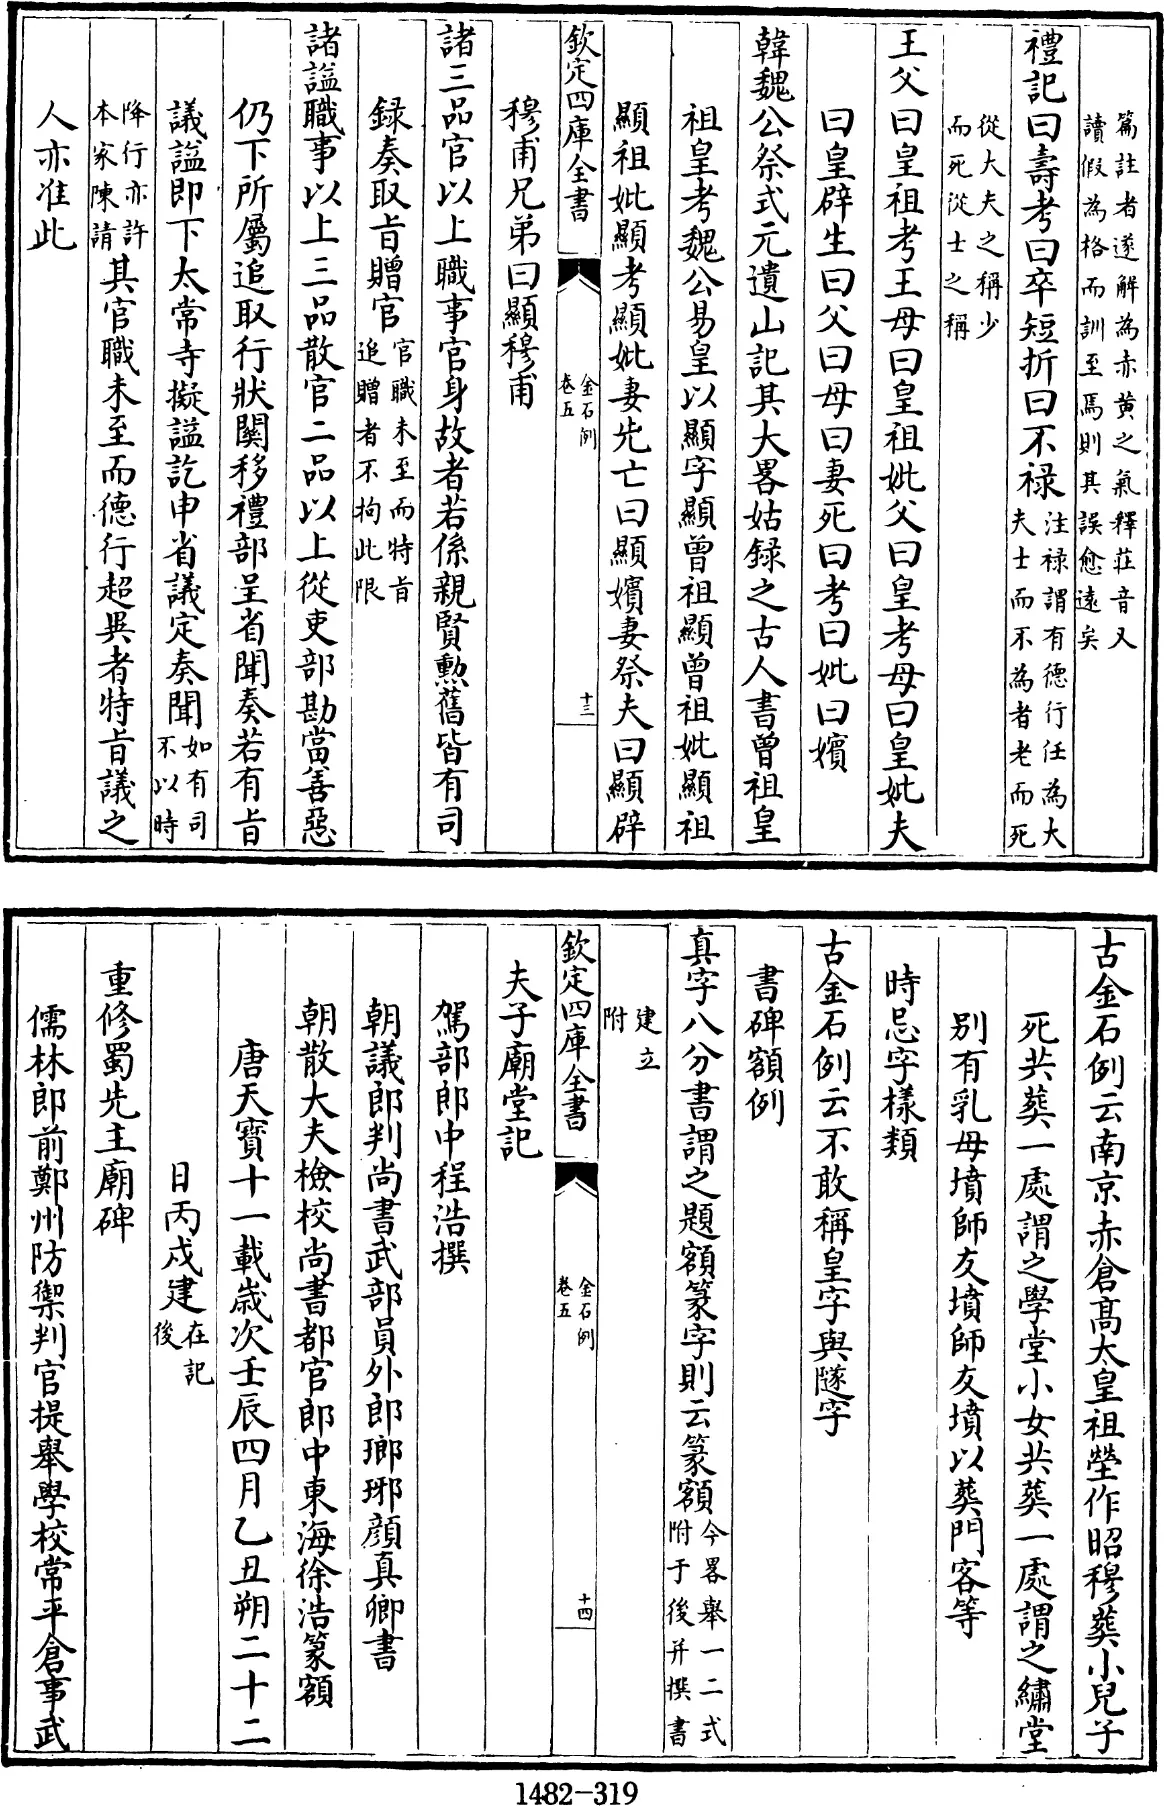 篇註者遂解為赤黄之氣釋莊音又
讀假為格而訓至焉則其誤愈逺矣
禮記曰壽考曰卒短折曰不禄注禄謂有德行任為大
夫士而不為者老而死
從大夫之稱少
而死從士之稱
王父曰皇祖考王母曰皇祖妣父曰皇考母曰皇妣夫
曰皇辟生曰父曰母曰妻死曰考曰妣曰嬪
韓魏公祭式元遺山記其大畧姑録之古人書曾祖皇
祖皇考魏公易皇以顯字顯曾祖顯曾祖妣顯祖
顯祖妣顯考顯妣妻先亡曰顯嬪妻祭夫曰顯辟
欽定四庫全書
金石例
卷五
十三
穆甫兄弟曰顯穆甫
諸三品官以上職事官身故者若係親賢勲舊皆有司
録奏取旨贈官官職未至而特旨
追贈者不拘此限
諸諡職事以上三品散官二品以上從吏部勘當善惡
仍下所屬追取行狀關移禮部呈省聞奏若有旨
議諡即下太常寺擬諡訖申省議定奏聞如有司
不以時
降行亦許
本家陳請其官職未至而德行超異者特旨議之
人亦准此
古金石例云南京赤倉髙太皇祖塋作昭穆葬小兒子
死共葬一處謂之學堂小女共葬一處謂之繡堂
别有乳母墳師友墳師友墳以葬門客等
時忌字様類
古金石例云不敢稱皇字與隧字
書碑額例
真字八分書謂之題額篆字則云篆額今畧舉一二式
附于後并撰書
建立
附
欽定四庫全書
金石例
卷五
十四
夫子廟堂記
駕部郎中程浩撰
朝議郎判尚書武部員外郎瑯琊顔真卿書
朝散大夫檢校尚書都官郎中東海徐浩篆額
唐天寳十一載嵗次壬辰四月乙丑朔二十二
日丙戌建在記
後
重修蜀先主廟碑
儒林郎前鄭州防禦判官提舉學校常平倉事武
1482-319